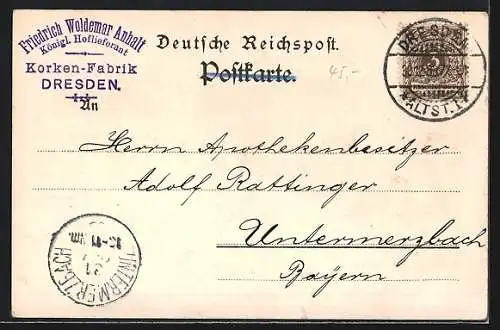 Friedrich Woldemar Anhalt
Königl. Hoflieferant
Korken-Fabrik
DRESDEN.
Deutsche Reichspost.
Postkarte.
45,-
DRESDEN
ALTST. 1
3
An
Herrn Apothekenbesitzer
Adolf Rattinger
Untermerzbach
Bayern
UNTERMERZBACH
21